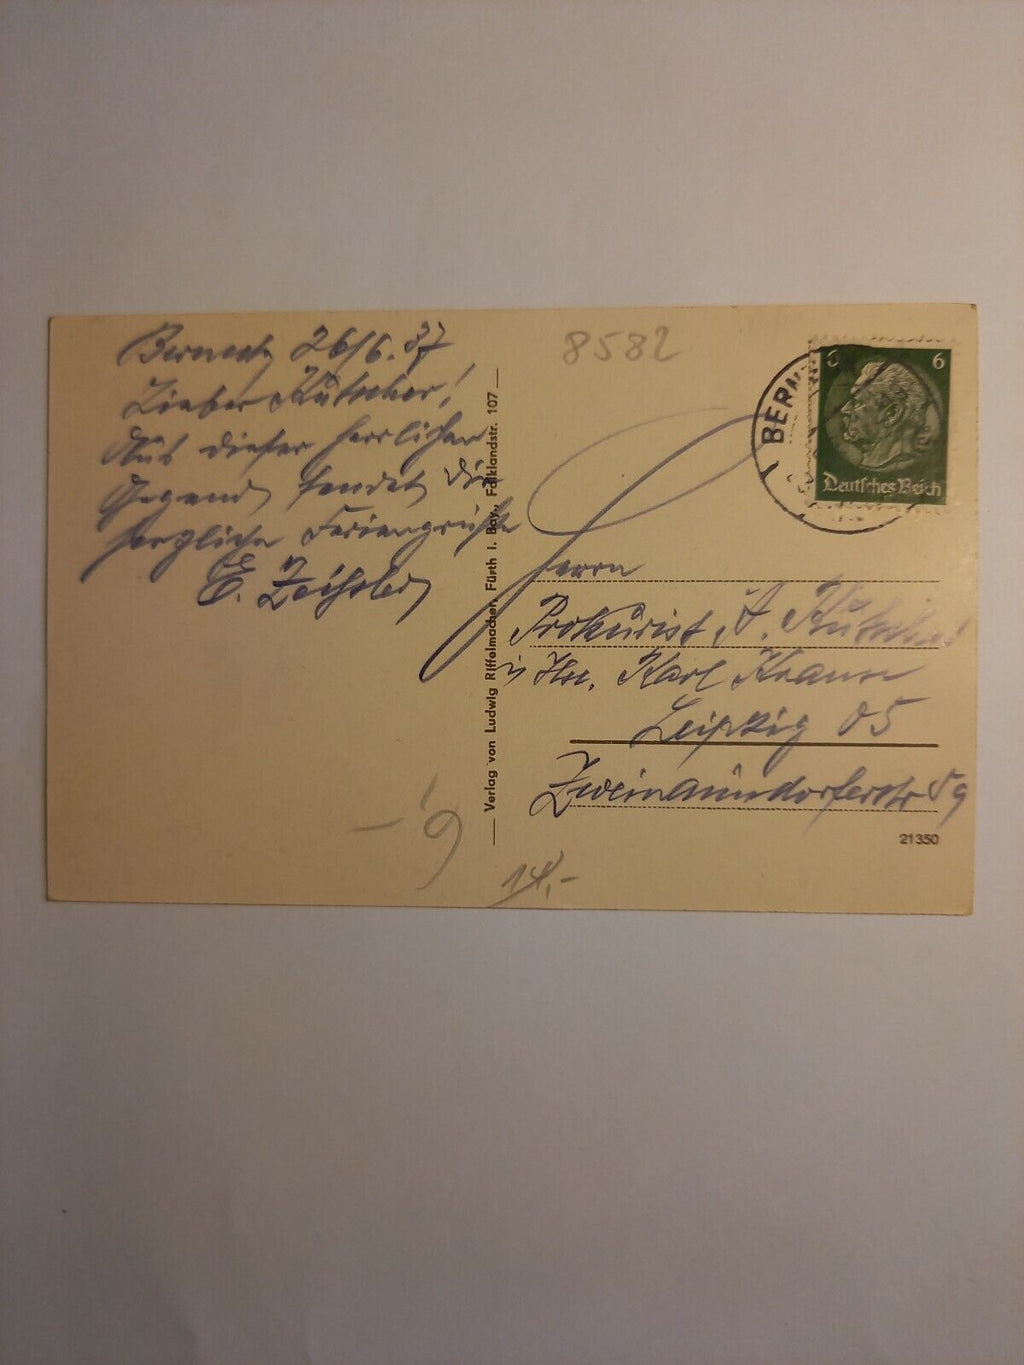 Berneck 26/6. 37
Lieber Kutscher!
Aus dieser herrlichen
Gegend sendet dir
herzliche Feriengrüße
E.
8582
6
Deutsches Reich
BERN
Herrn
Prokurist A. Kutscher
i/ Hse. Karl Krause
Leipzig O5
Zweinaundorferstr 59
21350
Verlag von Ludwig Riffelmacher, Fürth i. Bay., Falklandstr. 107
14,-